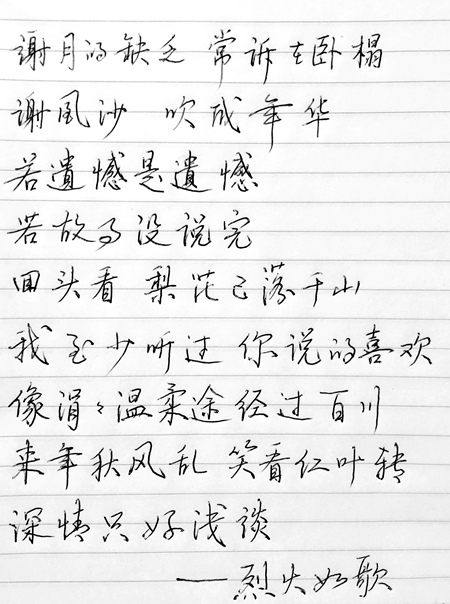 谢月的缺乏 常诉在卧榻
谢风沙 吹成年华
若遺憾是遺憾
若故事没说完
回头看 梨花已落千山
我至少听过 你说的喜欢
像涓々温柔途经过百川
来年秋风乱 笑看红叶转
深情只好浅谈
——烈火如歌